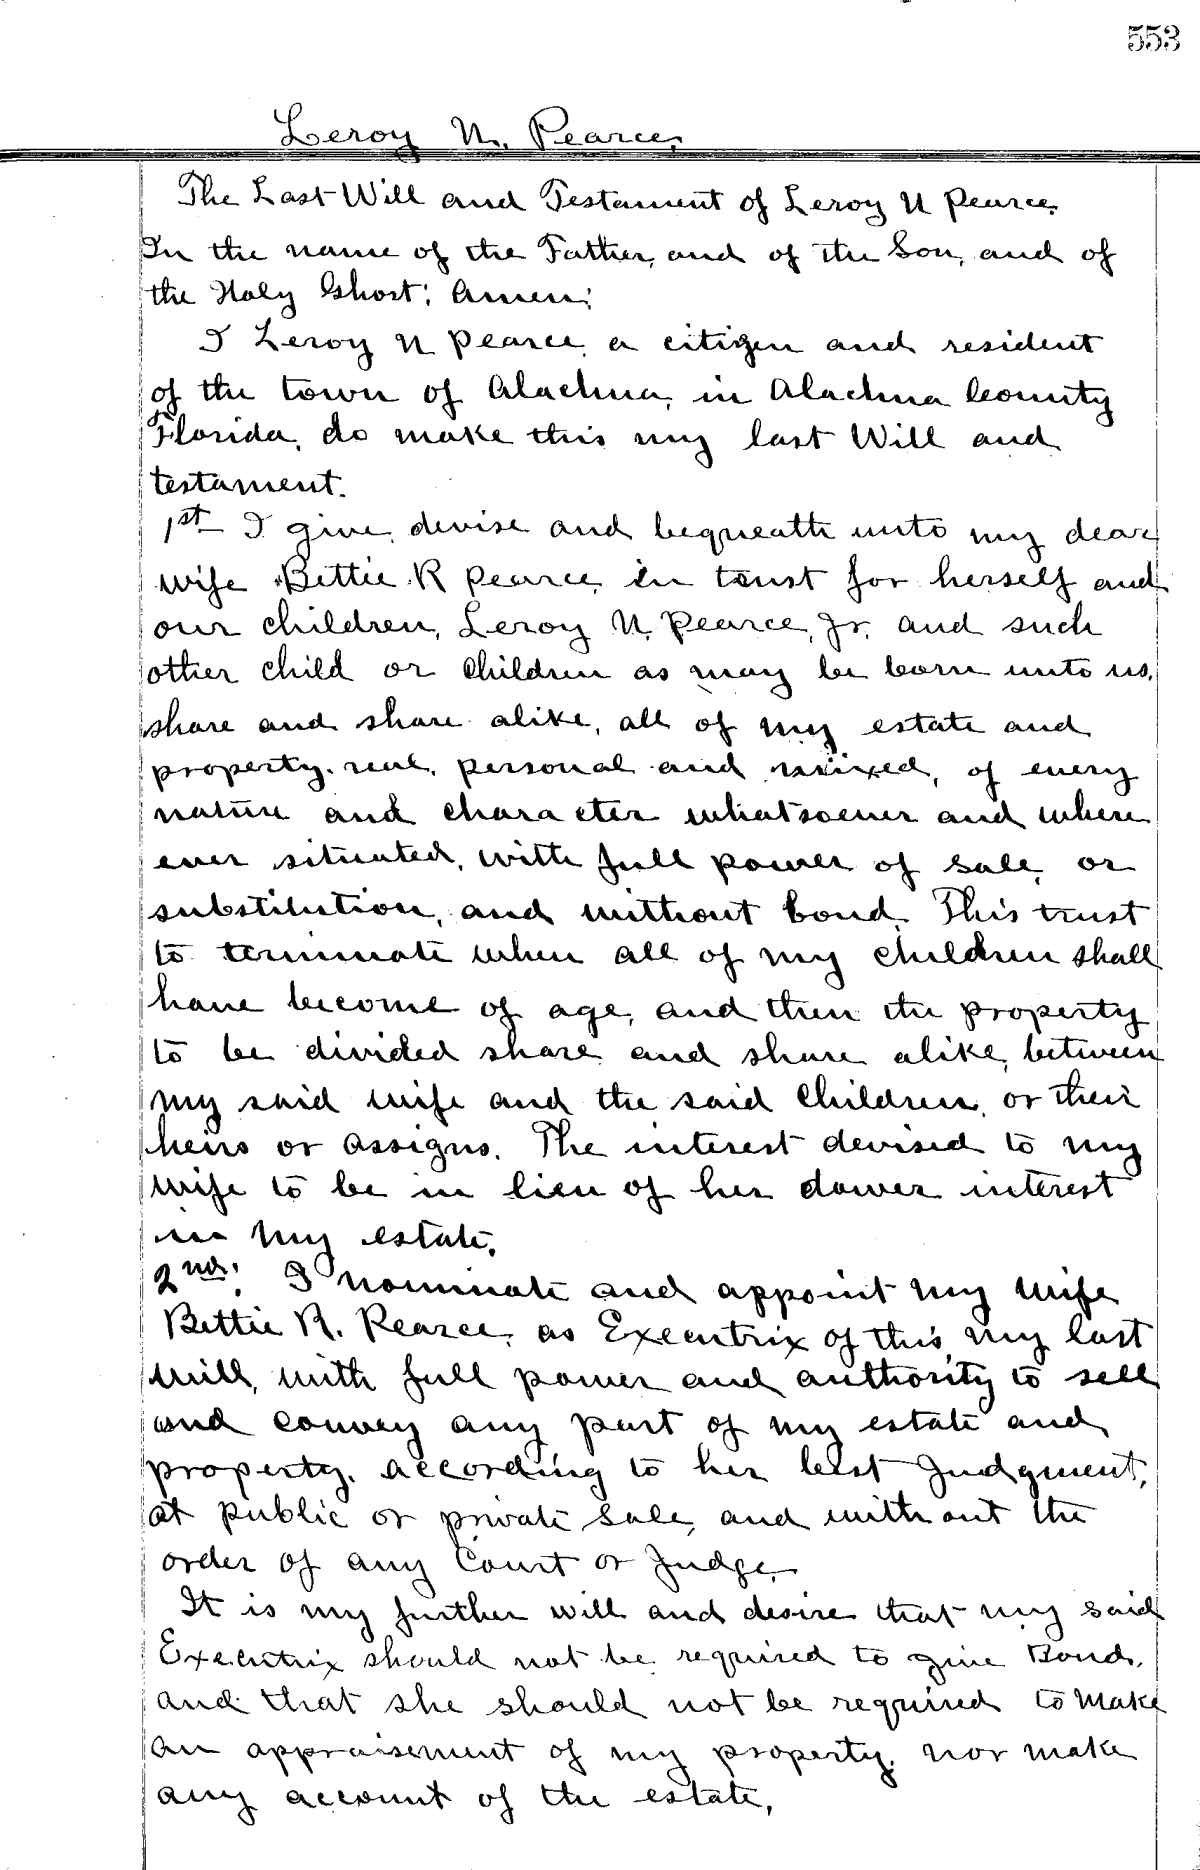 553
Leroy N. Pearce.
The Last Will and Testament of Leroy N Pearce.
In the name of the Father, and of the Son, and of
the Holy Ghost; Amen;
I Leroy N Pearce, a citizen and resident
of the town of Alachua, in Alachua County
Florida, do make this my last Will and
testament.
1st I give, devise and bequeath unto my dear
wife Bettie R Pearce, in trust for herself and
our children, Leroy N. Pearce, Jr. and such
other child or children as may be born unto us,
share and share alike, all of my estate and
property, real, personal and mixed, of every
nature and character whatsoever and where
ever situated, with full power of sale, or
substitution, and without bond. This trust
to terminate when all of my children shall
have become of age, and then the property
to be divided share and share alike, between
my said wife and the said children, or their
heirs or assigns. The interest devised to my
wife to be in lieu of her dower interest
in my estate.
2nd. I nominate and appoint my wife
Bettie R. Pearce, as Executrix of this my last
will, with full power and authority to sell
and convey any part of my estate and
property, according to her best Judgment,
at public or private sale, and without the
order of any Court or Judge.
It is my further will and desire that my said
Executrix should not be required to give Bond,
and that she should not be required to make
an appraisement of my property, nor make
any account of the estate,